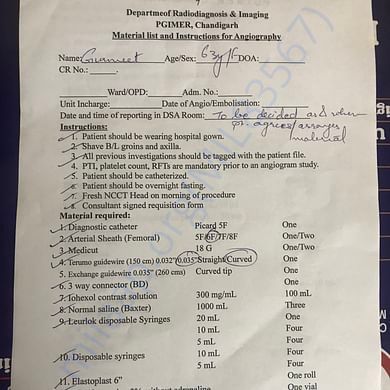 Departmeof Radiodiagnosis & Imaging
PGIMER, Chandigarh
Material list and Instructions for Angiography
Name: Gurmeet Age/Sex: 63y/F DOA:
CR No.:
Ward/OPD: Adm. No.:
Unit Incharge: Date of Angio/Embolisation:
Date and time of reporting in DSA Room: To be decided and when
pt. agrees/arranges
material
Instructions:
1. Patient should be wearing hospital gown.
2. Shave B/L groins and axilla.
3. All previous investigations should be tagged with the patient file.
4. PTI, platelet count, RFTs are mandatory prior to an angiogram study.
5. Patient should be catheterized.
6. Patient should be overnight fasting.
7. Fresh NCCT Head on morning of procedure
8. Consultant signed requisition form
Material required:
1. Diagnostic catheter Picard 5F One
2. Arterial Sheath (Femoral) 5F/6F/7F/8F One/Two
3. Medicut 18 G One/Two
4. Terumo guidewire (150 cm) 0.032"/0.035" Straight/Curved One
5. Exchange guidewire 0.035" (260 cms) Curved tip One
6. 3 way connector (BD) One
7. Iohexol contrast solution 300 mg/mL 100 mL
8. Normal saline (Baxter) 1000 mL Three
9. Leurlok disposable Syringes 20 mL One
10 mL Four
5 mL Four
10. Disposable syringes 10 mL Four
5 mL Four
11. Elastoplast 6" One roll
without adrenaline One vial